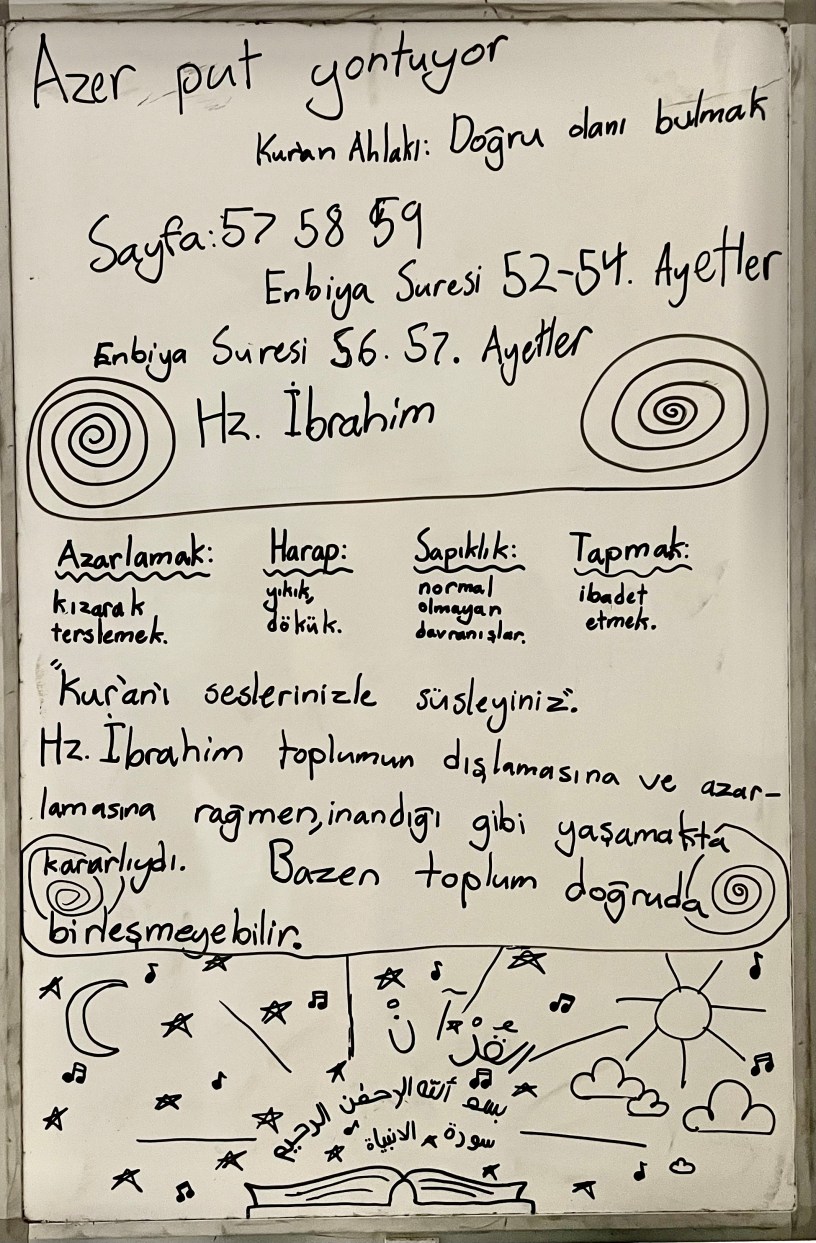 Azer put yontuyor
Kur'an Ahlakı: Doğru olanı bulmak
Sayfa: 57 58 59
Enbiya Suresi 52-54. Ayetler
Enbiya Suresi 56. 57. Ayetler
Hz. İbrahim
Azarlamak:
kızarak
terslemek.
Harap:
yıkık,
dökük.
Sapıklık:
normal
olmayan
davranışlar.
Tapmak:
ibadet
etmek.
"Kur'an'ı seslerinizle süsleyiniz".
Hz. İbrahim toplumun dışlamasına ve azar-
lamasına rağmen, inandığı gibi yaşamakta
kararlıydı. Bazen toplum doğruda
birleşmeyebilir.
القرآن
بسم الله الرحمن الرحيم
سورة الانبياة